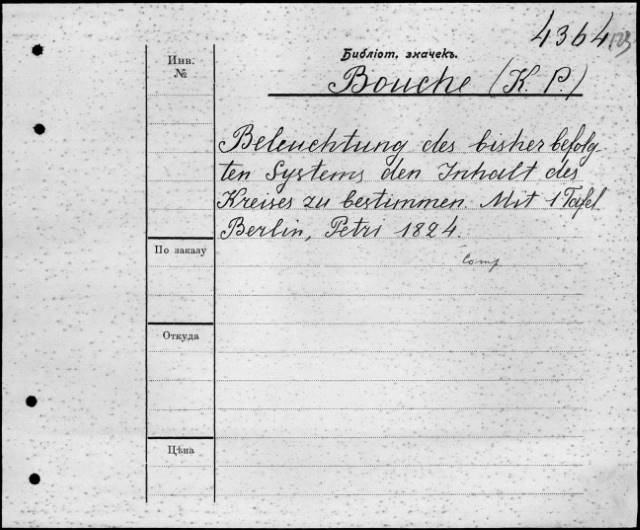 4364
Библіот. значекъ.
Инв.
№
Bouche (K. P.)
Beleuchtung des bisher befolg
ten Systems den Inhalt des
Kreises zu bestimmen. Mit 1 Tafel
Berlin, Petri 1824.
comp
По заказу
Откуда
Цѣна